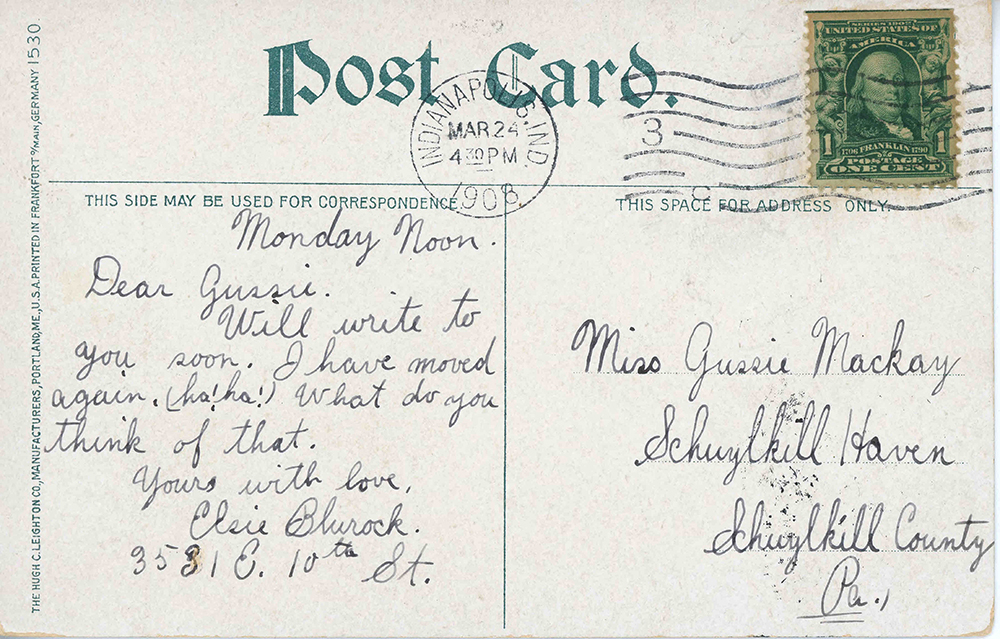 Post Card.
INDIANAPOLIS, IND.
MAR. 24
4 30 PM
1908.
3
C
SERIES 1902
UNITED STATES OF
AMERICA
1706 FRANKLIN 1790
1 1
POSTAGE
ONE CENT
THIS SIDE MAY BE USED FOR CORRESPONDENCE.
THIS SPACE FOR ADDRESS ONLY.
Monday Noon.
Dear Gussie.
Will write to
you soon. I have moved
again. (ha! ha!) What do you
think of that.
Yours with love,
Elsie Blurock.
3531 E. 10th St.
Miss Gussie Mackay
Schuylkill Haven
Schuylkill County
Pa.,
THE HUGH C. LEIGHTON CO., MANUFACTURERS, PORTLAND, ME., U.S.A. PRINTED IN FRANKFORT o/MAIN, GERMANY 1530